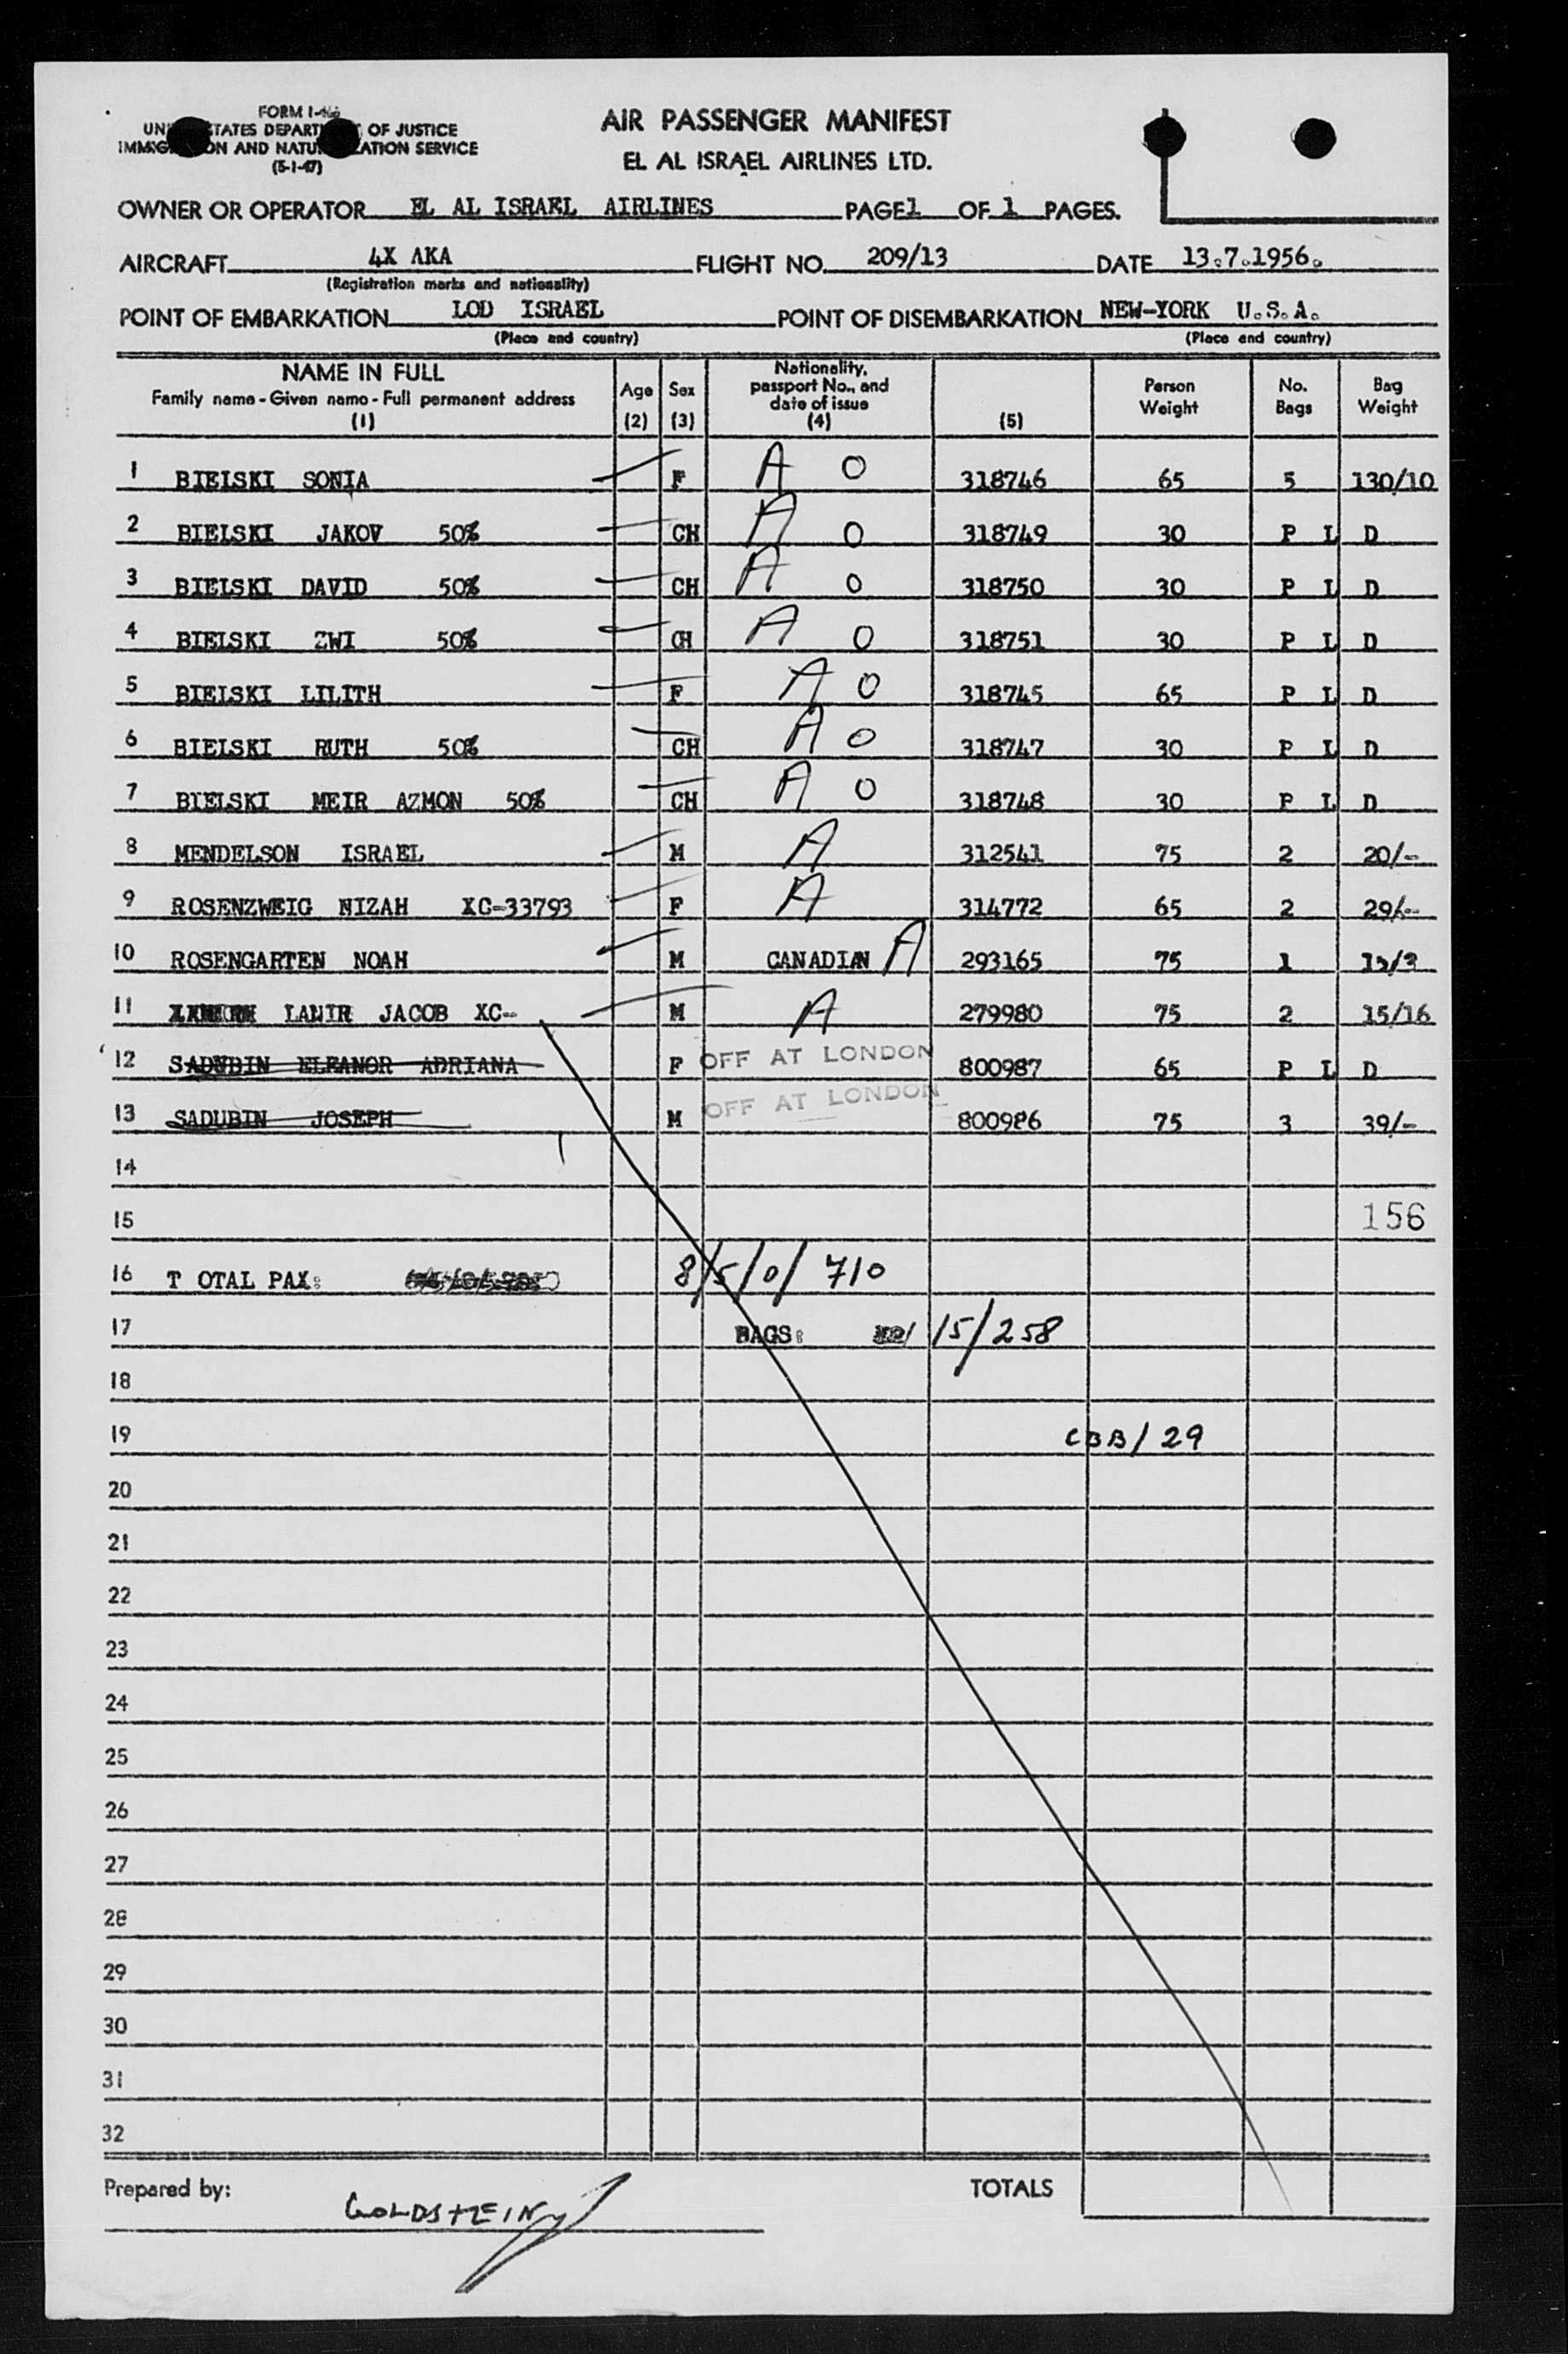 FORM I-466
UNITED STATES DEPARTMENT OF JUSTICE
IMMIGRATION AND NATURALIZATION SERVICE
(5-1-47)
AIR PASSENGER MANIFEST
EL AL ISRAEL AIRLINES LTD.
OWNER OR OPERATOR EL AL ISRAEL AIRLINES PAGE 1 OF 1 PAGES.
AIRCRAFT 4X AKA FLIGHT NO. 209/13 DATE 13.7.1956.
(Registration marks and nationality)
POINT OF EMBARKATION LOD ISRAEL POINT OF DISEMBARKATION NEW-YORK U.S.A.
(Place and country) (Place and country)
NAME IN FULL
Family name - Given name - Full permanent address
(1)
Age
(2)
Sex
(3)
Nationality,
passport No., and
date of issue
(4)
(5)
Person
Weight
No.
Bags
Bag
Weight
1 BIELSKI SONIA F A O 318746 65 5 130/10
2 BIELSKI JAKOV 50% CH A O 318749 30 P L D
3 BIELSKI DAVID 50% CH A O 318750 30 P L D
4 BIELSKI ZWI 50% CH A O 318751 30 P L D
5 BIELSKI LILITH F A O 318745 65 P L D
6 BIELSKI RUTH 50% CH A O 318747 30 P L D
7 BIELSKI MEIR AZMON 50% CH A O 318748 30 P L D
8 MENDELSON ISRAEL M A 312541 75 2 20/-
9 ROSENZWEIG NIZAH XC-33793 F A 314772 65 2 29/-
10 ROSENGARTEN NOAH M CANADIAN A 293165 75 1
11 LANIR JACOB XC- M A 279980 75 2 15/16
12 SADUBIN ELEANOR ADRIANA F OFF AT LONDON 800987 65 P L D
13 SADUBIN JOSEPH M OFF AT LONDON 800986 75 3 39/-
14
15 156
16 T OTAL PAX: 8/5/0/ 710
17 BAGS: 15/258
18
19 CBB/29
20
21
22
23
24
25
26
27
28
29
30
31
32
Prepared by: GOLDSTEIN TOTALS